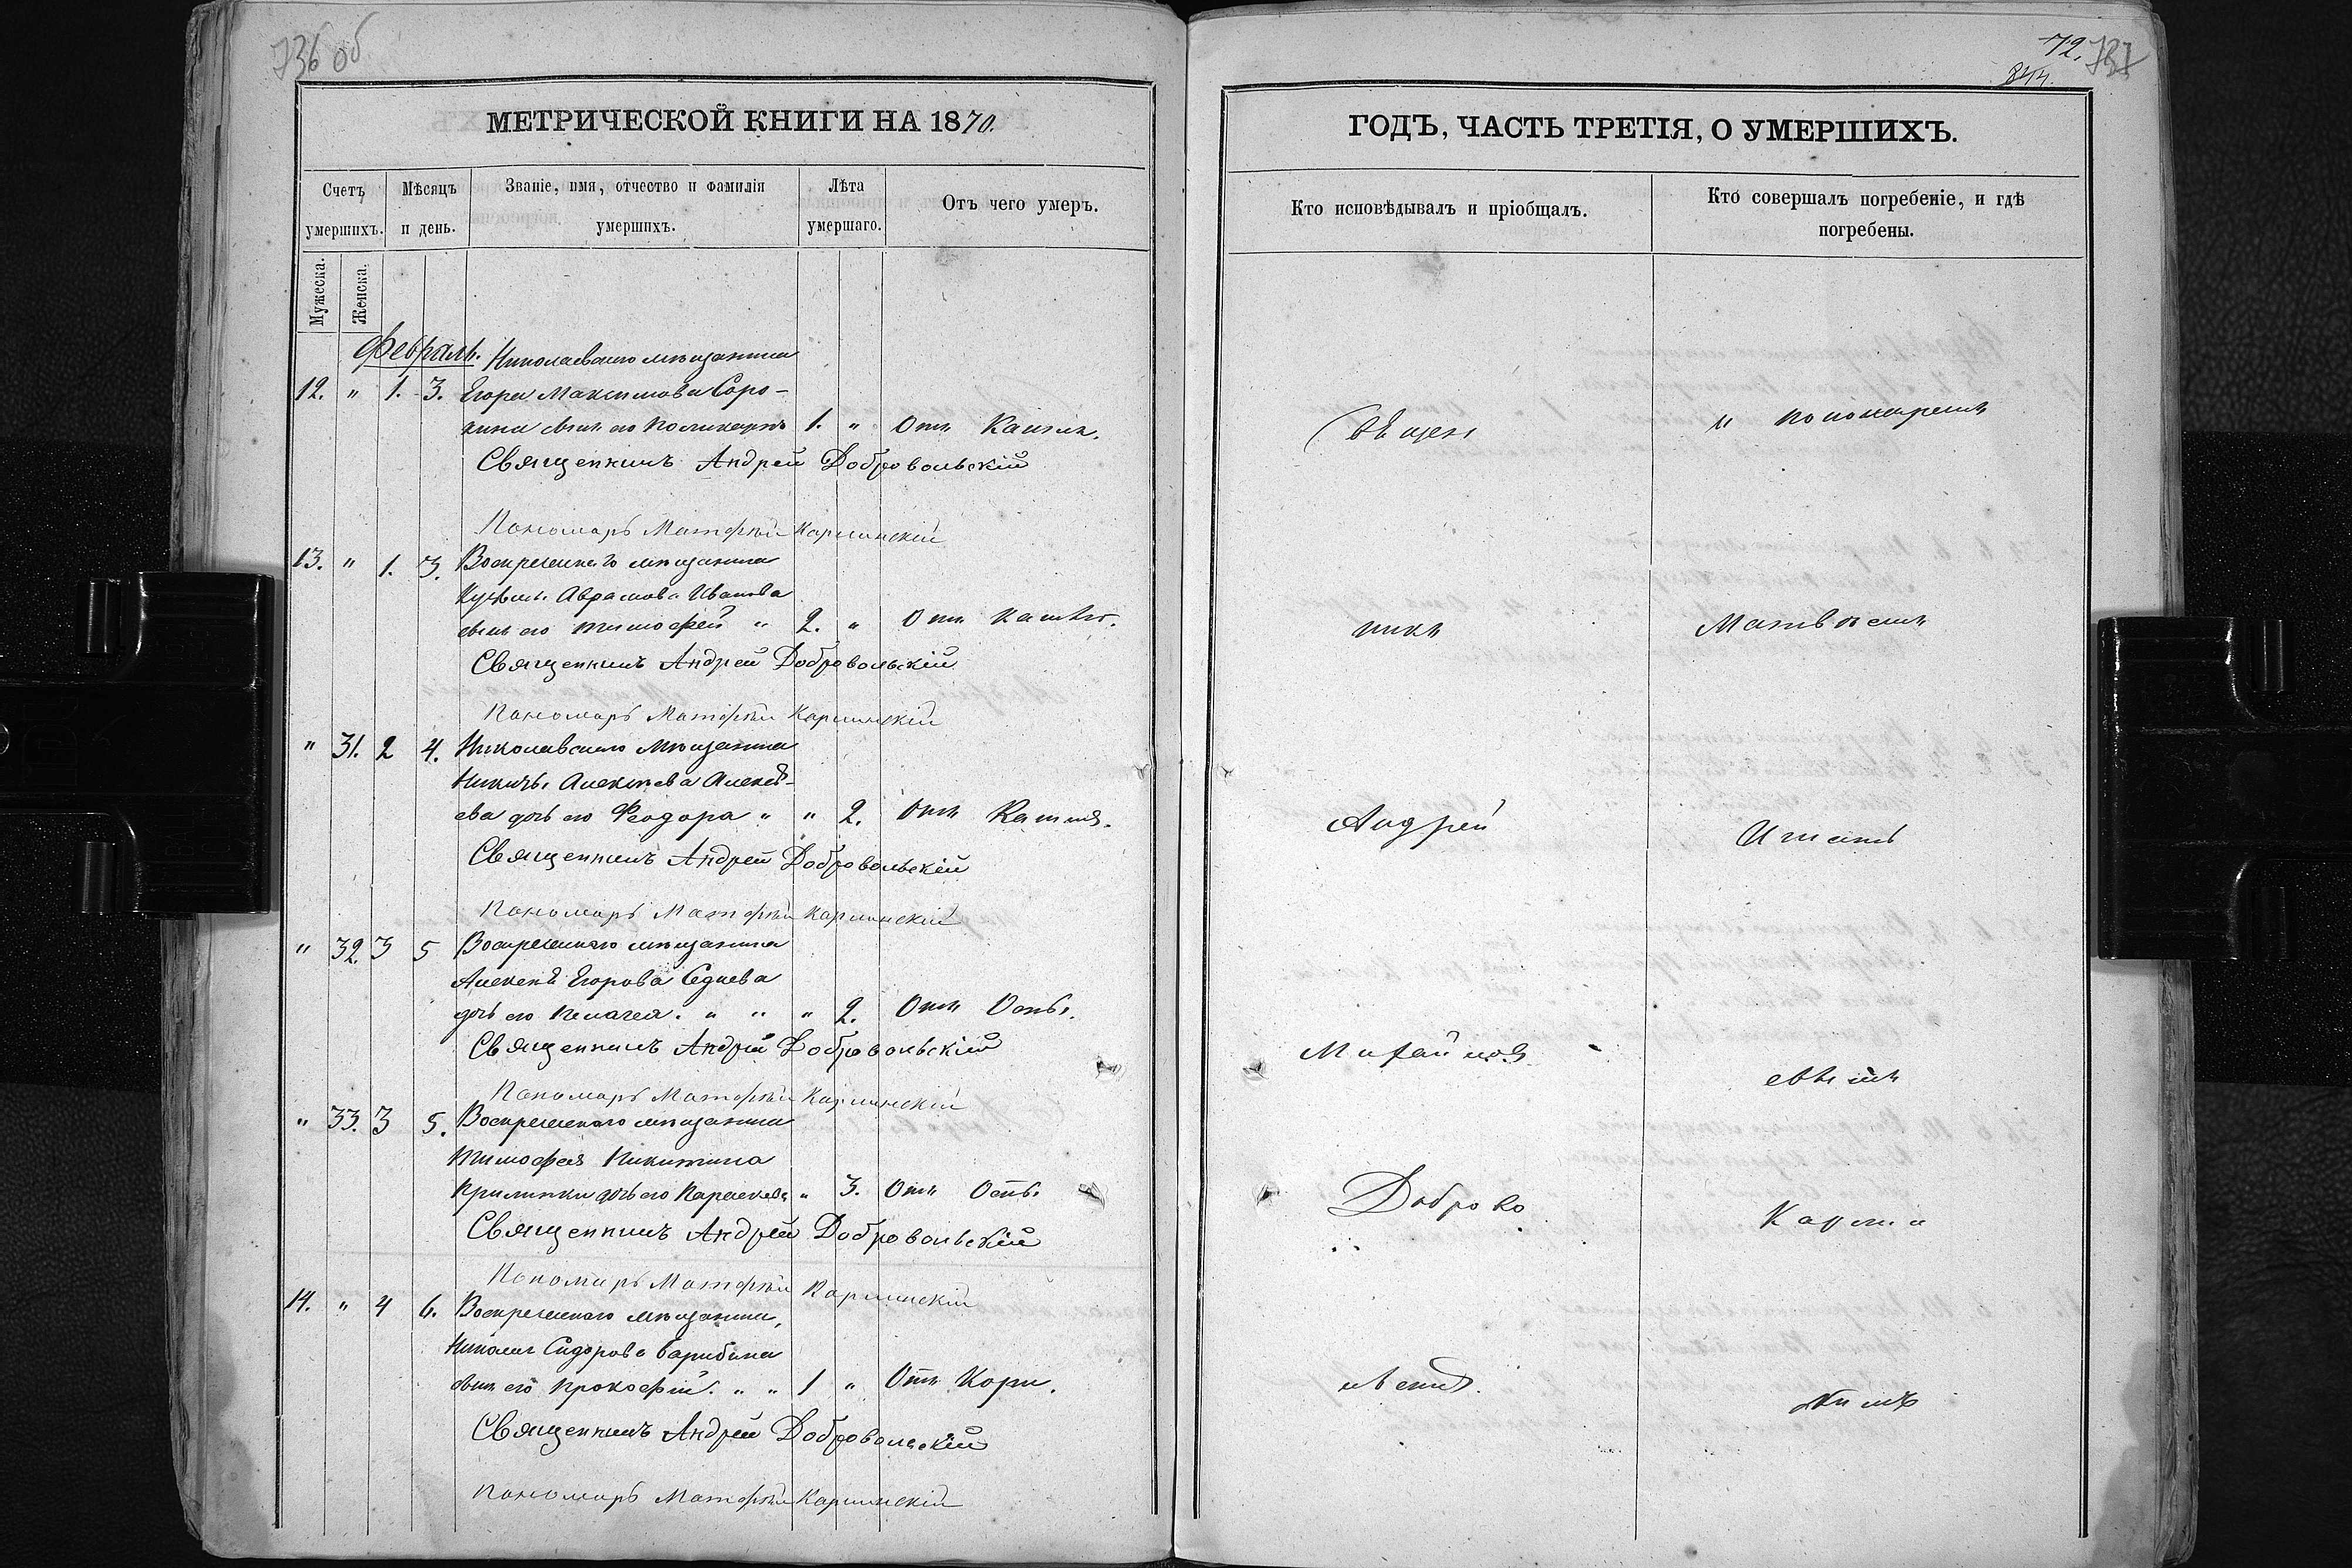 736 об
МЕТРИЧЕСКОЙ КНИГИ НА 1870.
Счетъ умершихъ.
Мѣсяцъ и день.
Званіе, имя, отчество и фамилія умершихъ.
Лѣта умершаго.
Отъ чего умеръ.
Мужеска.
Женска.
Февраль.
Николаевскаго мѣщанина
12. " 1. 3. Егора Максимова Соро-
кина сынъ его Поликарпъ 1. " Отъ Кашля.
Священникъ Андрей Добровольскій
Пономарь Матфѣй Карминскій
13. " 1. 3. Воскресенскаго мѣщанина
Кузьмы Аврамова Иванова
сынъ его Тимофей " 2. " Отъ кашля.
Священникъ Андрей Добровольскій
Пономарь Матфѣй Карминскій
" 31. 2 4. Николаевскаго мѣщанина
Алексѣева Алексѣ-
ева дочь его Феодора " " 2. Отъ Кашля.
Священникъ Андрей Добровольскій
Пономарь Матфѣй Карминскій
" 32. 3 5 Воскресенскаго мѣщанина
Алексѣя Егорова Седнева
дочь его Пелагея. " " " 2. Отъ Оспы.
Священникъ Андрей Добровольскій
Пономарь Матфѣй Карминскій
" 33. 3 5. Воскресенскаго мѣщанина
Тимофея Никитина
дочь его Параскева " 3. Отъ Оспы
Священникъ Андрей Добровольскій
Пономарь Матфѣй Карминскій
14. " 4 6. Воскресенскаго мѣщанина,
Николая Сидорова Барибина
сынъ его Прокофій. " " 1 " Отъ Кори.
Священникъ Андрей Добровольскій
Пономарь Матфѣй Карминскій
72. 737
844.
ГОДЪ, ЧАСТЬ ТРЕТІЯ, О УМЕРШИХЪ.
Кто исповѣдывалъ и пріобщалъ.
Кто совершалъ погребеніе, и гдѣ погребены.
Священ
никъ
Андрей
Михайловъ
Доброво
льскій.
и пономаремъ
Матвѣемъ
Игнать
евымъ
Карми
нскимъ